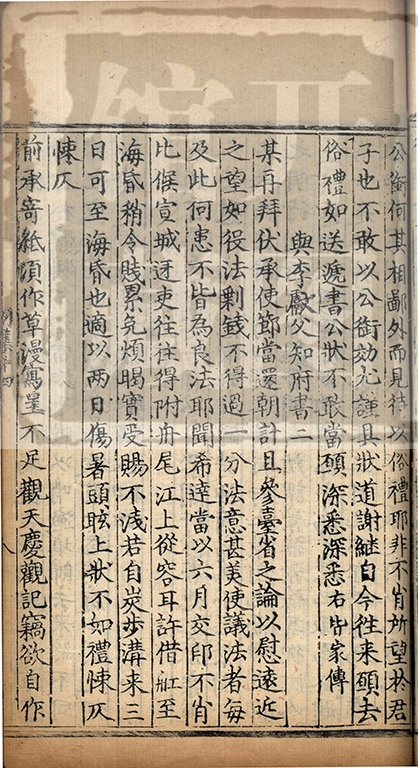 公銜何其相鄙外而見待以俗禮耶非不肖所望於君
子也不敢以公銜効尤謹具狀道謝繼自今往来願去
俗禮如送遞書公狀不敢當願深悉深悉右皆家傳
與李獻父知府書二
某再拜伏承使節當還朝計且參臺省之論以慰遠近
之望如役法剰錢不得過一分法意甚美使議法者每
及此何患不皆為良法耶聞希逹當以六月交印不肖
比候宣城迓吏往往得附舟尾江上從容耳許借舡至
海昏稍令賤累免煩暍實受賜不淺若自炭步溝来三
日可至海昏也適以兩日傷暑頭眩上狀不如禮悚仄
悚仄
前承寄紙頃作草漫寫呈不足觀天慶觀記竊欲自作
別集卷十四
八